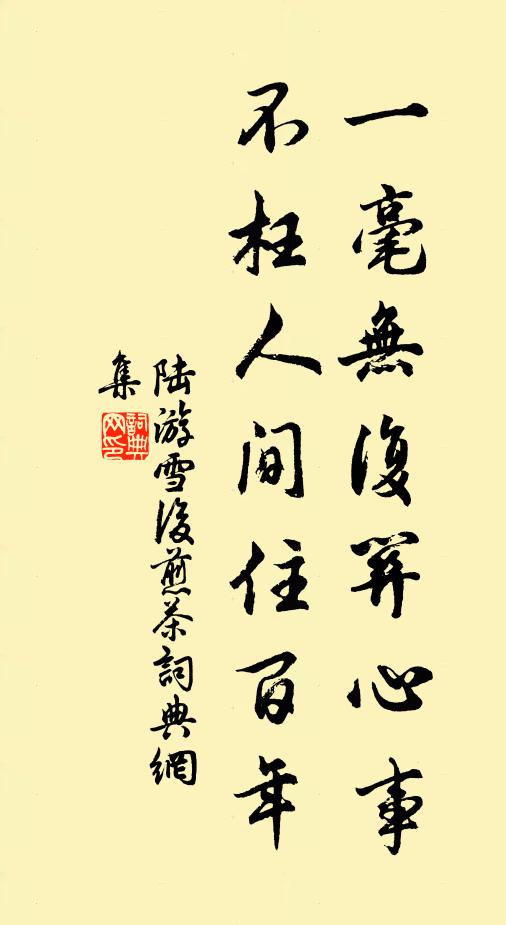 一毫無復關心事
不枉人間住百年
陸游雪後煎茶詞典網
集
詞典
网印